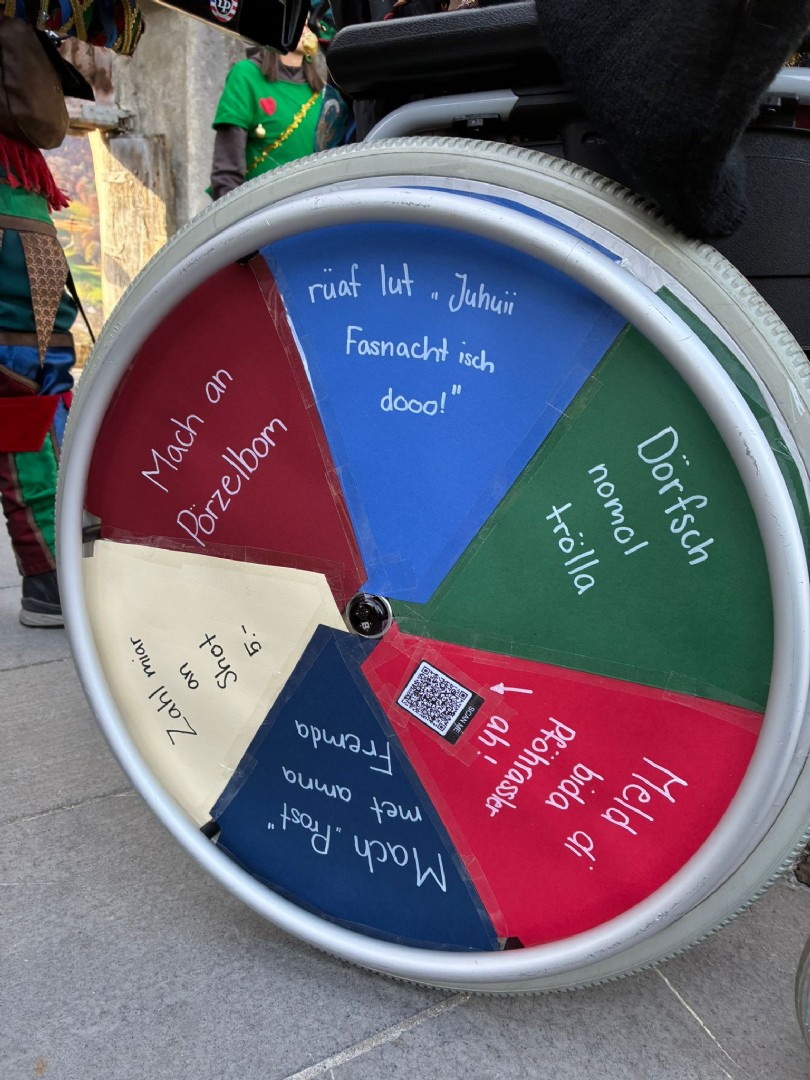 LP
rüaf lut „Juhuii
Fasnacht isch
dooo!"
Dörfsch
nomol
trölla
Meld di
bida
Pföhrassler
ah!
SCAN ME
Mach „Prost"
met amna
Fremda
Zahl miar
an
Shot
5.-
Mach an
Pörzelbom